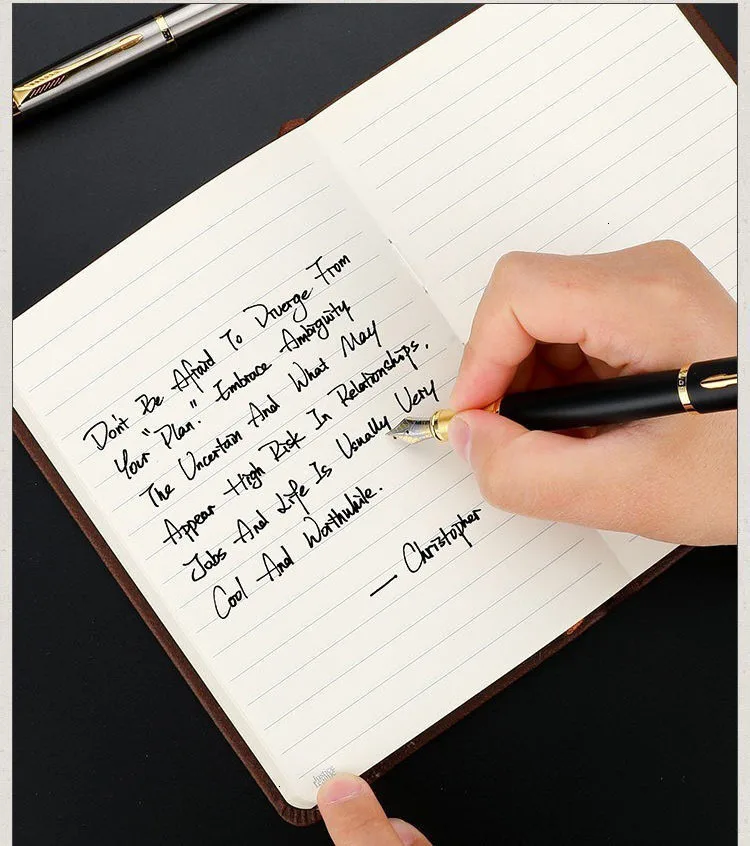 Don't Be Afraid To Diverge From
Your "Plan." Embrace Ambiguity
The Uncertain And What May
Appear High Risk In Relationships.
Jobs And Life Is Usually Very
Cool And Worthwhile.
— Christopher